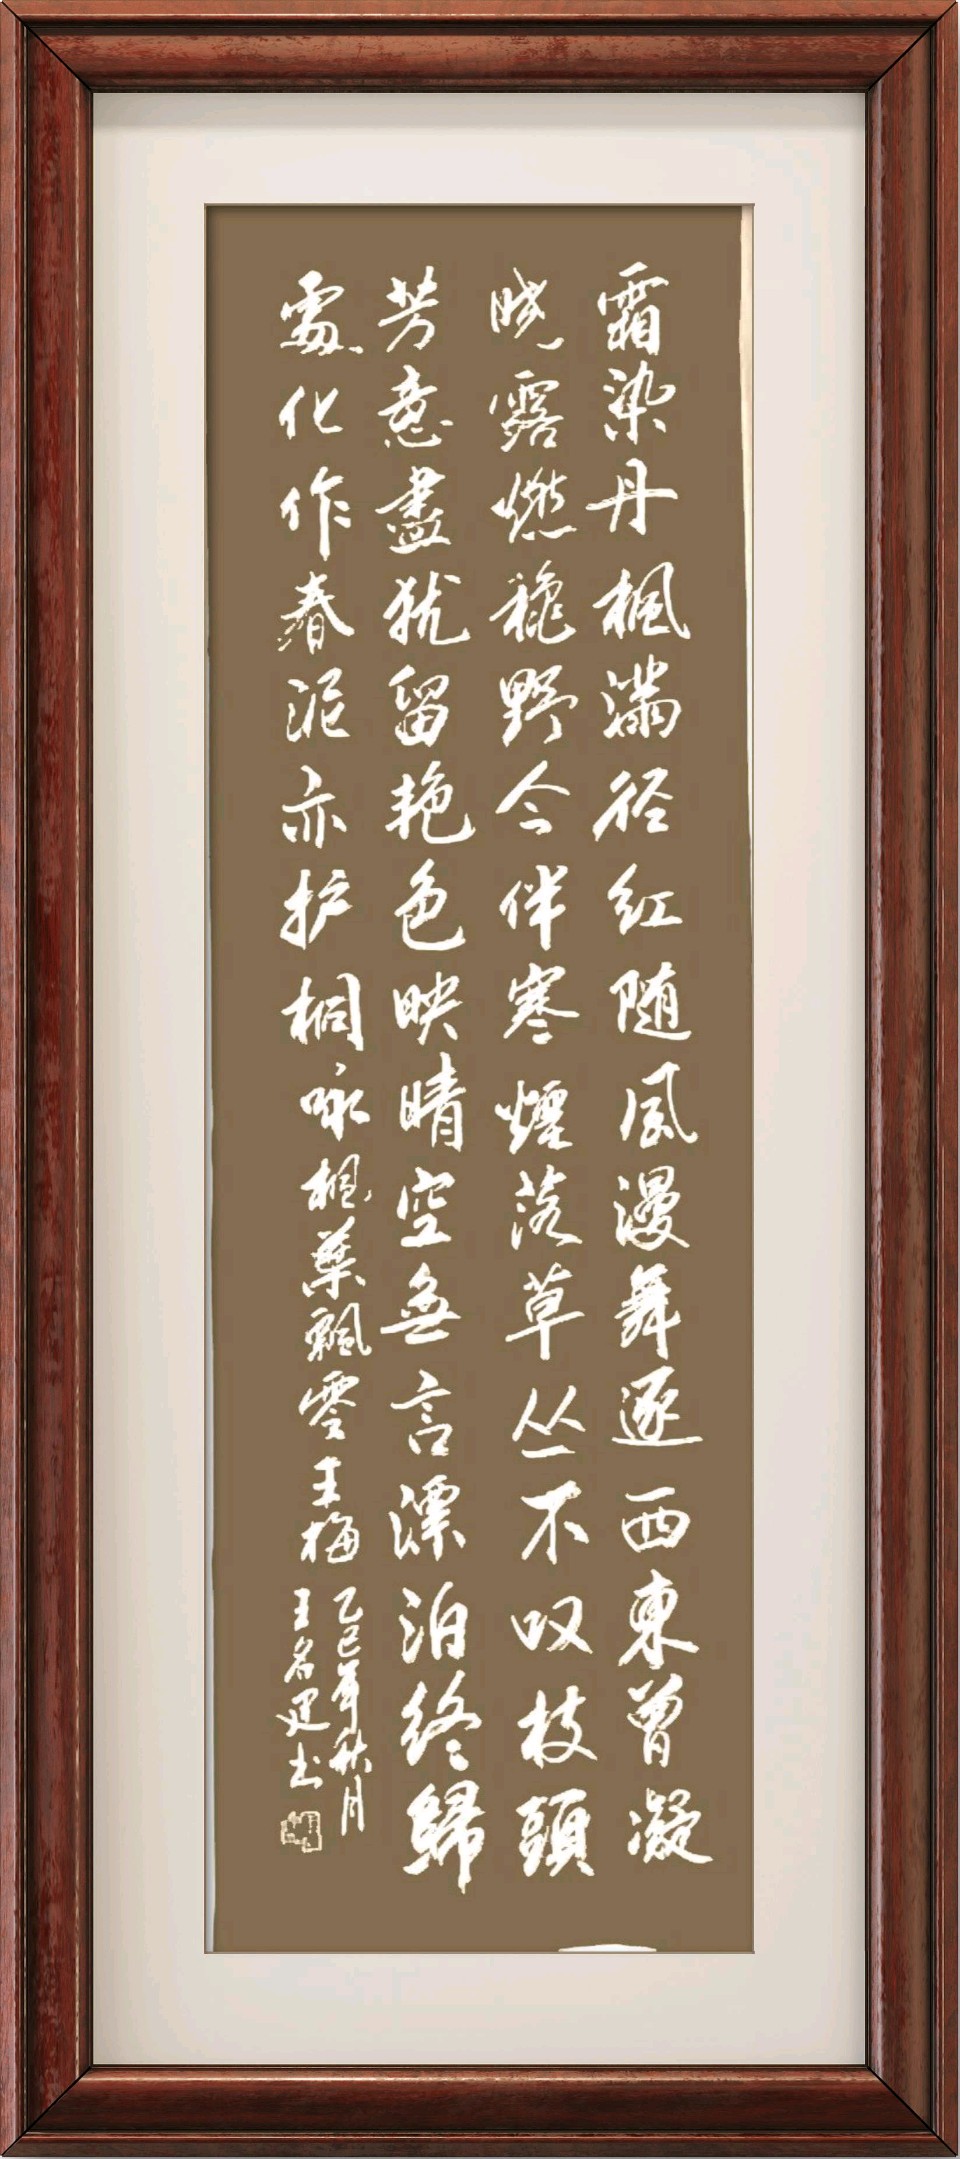 霜染丹楓滿径红随风漫舞逐西東曾凝
晓露燃穐野今伴寒煙落草丛不叹枝頭
芳意盡犹留艳色映晴空無言漂泊终歸
處化作春泥亦护桐咏楓葉飄零王梅
乙巳年秋月
王名建书